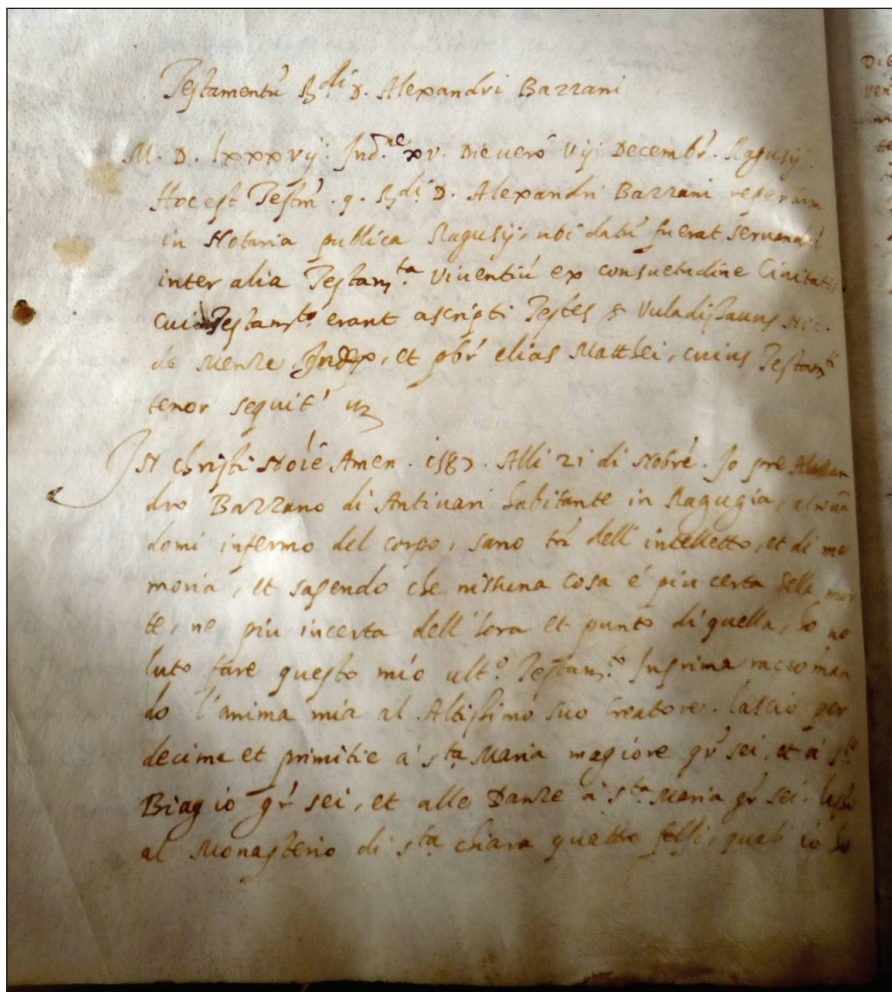 Testamentũ R.di D. Alexandri Bazzani
M. D. lxxxvij. Ind.ne xv. Die vero vij Decembr. Ragusij.
Hoc est Testm̃. q. R.di D. Alexandri Bazzani repertum
in Notaria publica Ragusij, ubi datũ fuerat servandũ
inter alia Testam.ta viventiũ ex consuetudine Civitatis
cui Testam.to erant ascripti Testes S. Vuladislauus Nic.
de Menze Judex, et pbr̃ elias Matthei, cuius Testam.ti
tenor sequit' uz
In christi noie Amen. 1587. Alli 21 di Nobre. Io pre Alessan
dro Bazzano di Antivari habitante in Ragugia,
domi infermo del corpo, sano tñ dell' intelletto, et di me
moria, et sapendo che nissuna cosa é piu certa della mor
te, ne piu incerta dell' hora et punto di quella, ho vo
luto fare questo mio ult.o Testam.to Inprima raccoman
do l'anima mia al Altissimo suo Creatore. lascio per
decime et primitie á s.ta Maria magiore gr̃ sei, et á s.to
Biagio gr̃ sei, et alle Danze á s.ta Maria gr̃ sei. lascio
al Monasterio di s.ta chiara quattro, quali io ho